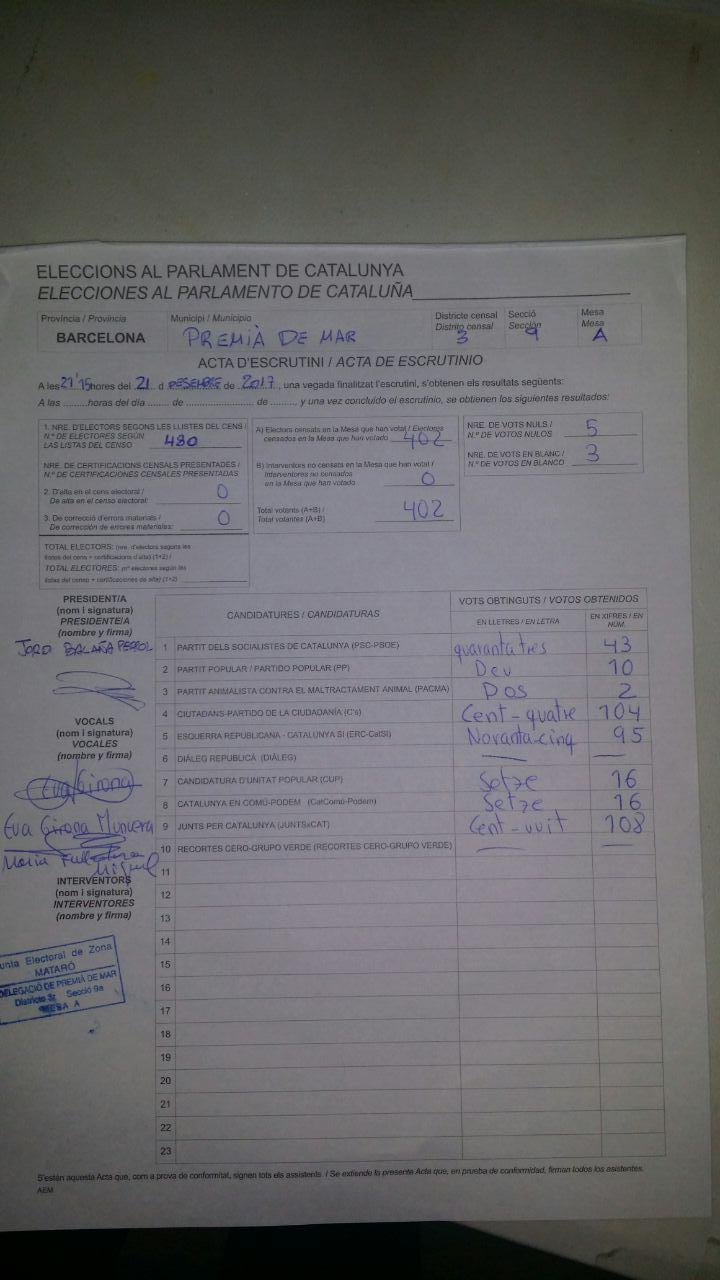 ELECCIONS AL PARLAMENT DE CATALUNYA
ELECCIONES AL PARLAMENTO DE CATALUÑA
Província / Provincia Municipi / Municipio Districte censal Secció Mesa
Distrito censal Sección Mesa
BARCELONA PREMIÀ DE MAR 3 9 A
ACTA D'ESCRUTINI / ACTA DE ESCRUTINIO
A les 21'15 hores del 21 d DESEMBRE de 2017, una vegada finalitzat l'escrutini, s'obtenen els resultats següents:
A las ......... horas del día ....... de .................... de ........, y una vez concluido el escrutinio, se obtienen los siguientes resultados:
1. NRE. D'ELECTORS SEGONS LES LLISTES DEL CENS /
N.º DE ELECTORES SEGÚN
LAS LISTAS DEL CENSO 480
NRE. DE CERTIFICACIONS CENSALS PRESENTADES /
N.º DE CERTIFICACIONES CENSALES PRESENTADAS
2. D'alta en el cens electoral /
De alta en el censo electoral: 0
3. De correcció d'errors materials /
De corrección de errores materiales: 0
TOTAL ELECTORS: (nre. d'electors segons les
llistes del cens + certificacions d'alta) (1+2) /
TOTAL ELECTORES: (nº electores según las
listas del censo + certificaciones de alta) (1+2)
A) Electors censats en la Mesa que han votat / Electores
censados en la Mesa que han votado 402
B) Interventors no censats en la Mesa que han votat /
Interventores no censados
en la Mesa que han votado 0
Total votants (A+B) /
Total votantes (A+B) 402
NRE. DE VOTS NULS /
N.º DE VOTOS NULOS 5
NRE. DE VOTS EN BLANC /
N.º DE VOTOS EN BLANCO 3
PRESIDENT/A
(nom i signatura)
PRESIDENTE/A
(nombre y firma)
JORDI BALAÑA
VOCALS
(nom i signatura)
VOCALES
(nombre y firma)
Eva Girona
Eva Girona Muncera
Maria
Miquel
INTERVENTORS
(nom i signatura)
INTERVENTORES
(nombre y firma)
unta Electoral de Zona
MATARÓ
DELEGACIÓ DE PREMIÀ DE MAR
Districte 3r Secció 9a
MESA A
CANDIDATURES / CANDIDATURAS VOTS OBTINGUTS / VOTOS OBTENIDOS
EN LLETRES / EN LETRA EN XIFRES / EN NÚM.
1 PARTIT DELS SOCIALISTES DE CATALUNYA (PSC-PSOE) quaranta tres 43
2 PARTIT POPULAR / PARTIDO POPULAR (PP) Deu 10
3 PARTIT ANIMALISTA CONTRA EL MALTRACTAMENT ANIMAL (PACMA) Dos 2
4 CIUTADANS-PARTIDO DE LA CIUDADANÍA (C's) Cent-quatre 104
5 ESQUERRA REPUBLICANA - CATALUNYA SÍ (ERC-CatSí) Noranta-cinq 95
6 DIÀLEG REPUBLICÀ (DIÀLEG)
7 CANDIDATURA D'UNITAT POPULAR (CUP) Setze 16
8 CATALUNYA EN COMÚ-PODEM (CatComú-Podem) Setze 16
9 JUNTS PER CATALUNYA (JUNTSxCAT) Cent-vuit 108
10 RECORTES CERO-GRUPO VERDE (RECORTES CERO-GRUPO VERDE)
11
12
13
14
15
16
17
18
19
20
21
22
23
S'estén aquesta Acta que, com a prova de conformitat, signen tots els assistents. / Se extiende la presente Acta que, en prueba de conformidad, firman todos los asistentes.
AEM